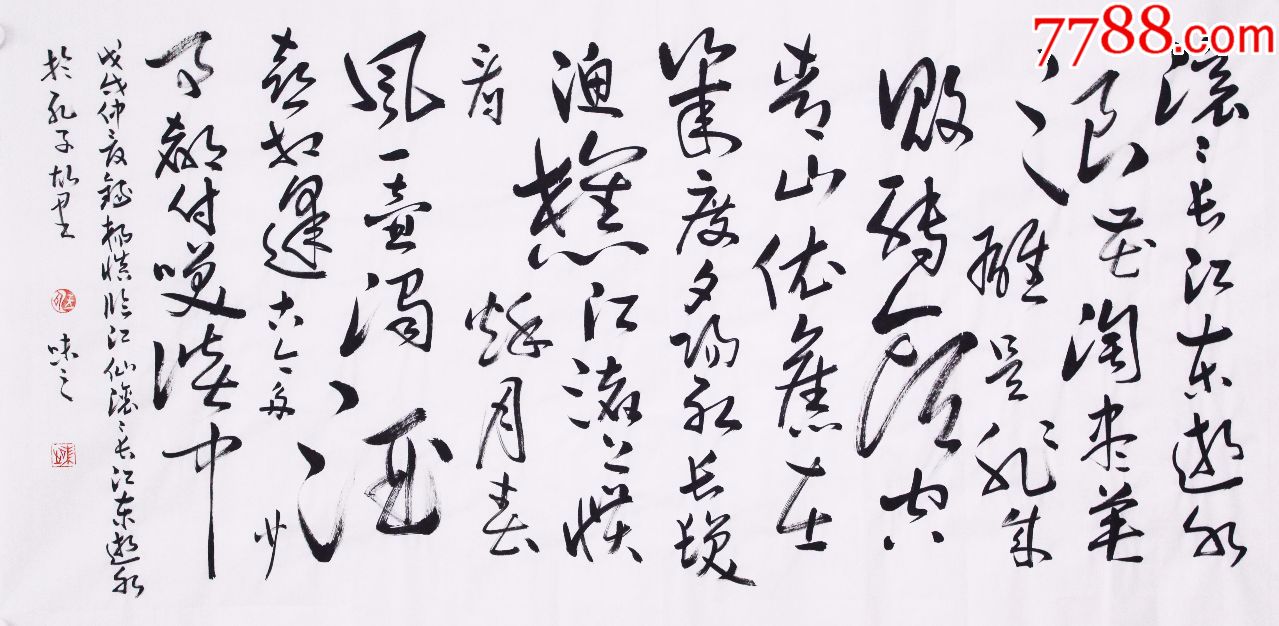 7788.com
滚〻长江东逝水
浪花淘尽英
雄是非成
败转头空
青山依舊在
幾度夕陽紅长髮
渔樵江渚上惯
看秋月春
風一壶濁酒
喜相逢古今多少
事都付笑談中
戊戌仲夏錄楊慎临江仙滚〻长江东逝水
於孔子故里 味之